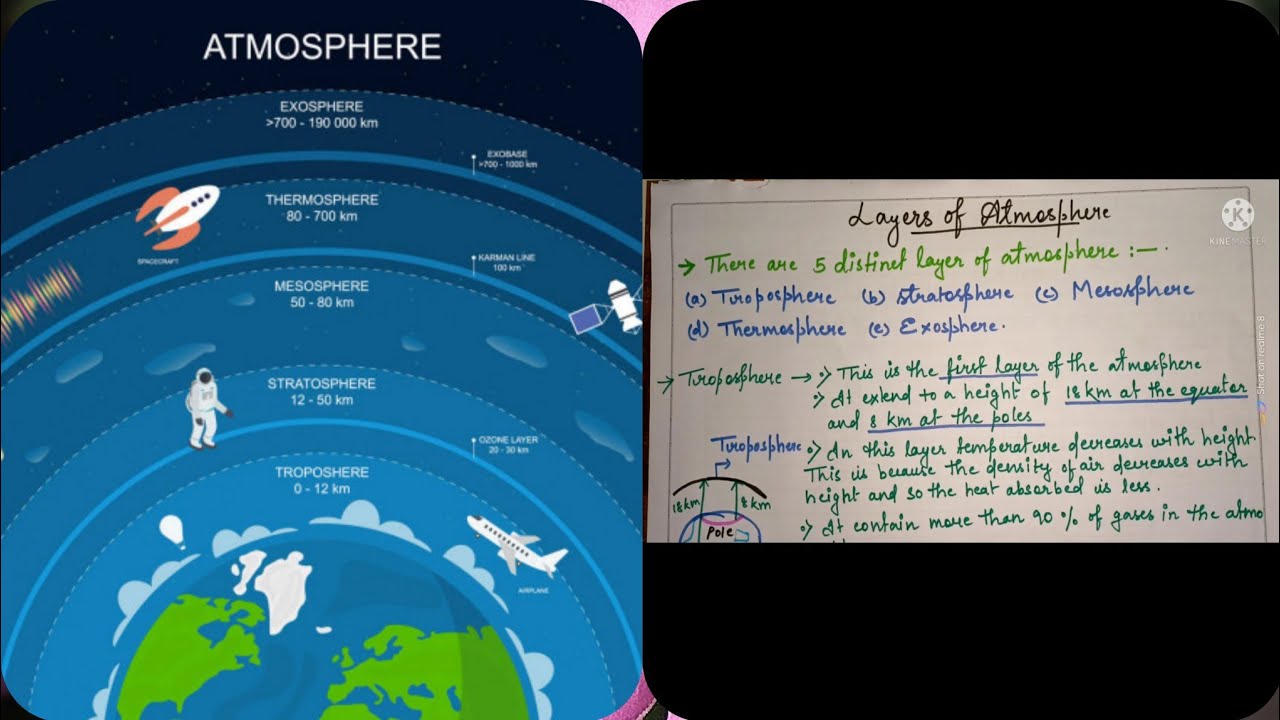 ATMOSPHERE
EXOSPHERE
>700 - 190 000 km
EXOBASE
>700 - 1000 km
THERMOSPHERE
80 - 700 km
SPACECRAFT
KARMAN LINE
100 km
MESOSPHERE
50 - 80 km
STRATOSPHERE
12 - 50 km
OZONE LAYER
20 - 30 km
TROPOSHERE
0 - 12 km
AIRPLANE
Layers of Atmosphere
KINEMASTER
→ There are 5 distinct layer of atmosphere :— .
(a) Troposphere (b) stratosphere (c) Mesosphere
(d) Thermosphere (e) Exosphere.
→ Troposphere → :> This is the first layer of the atmosphere
:> It extend to a height of 18 km at the equater
and 8 km at the poles
Troposphere
:> In this layer temperature decreases with height.
This is because the density of air decreases with
height and so the heat absorbed is less.
18 km
8 km
Pole
:> It contain more than 90 % of gases in the atmo
Shot on realme 8